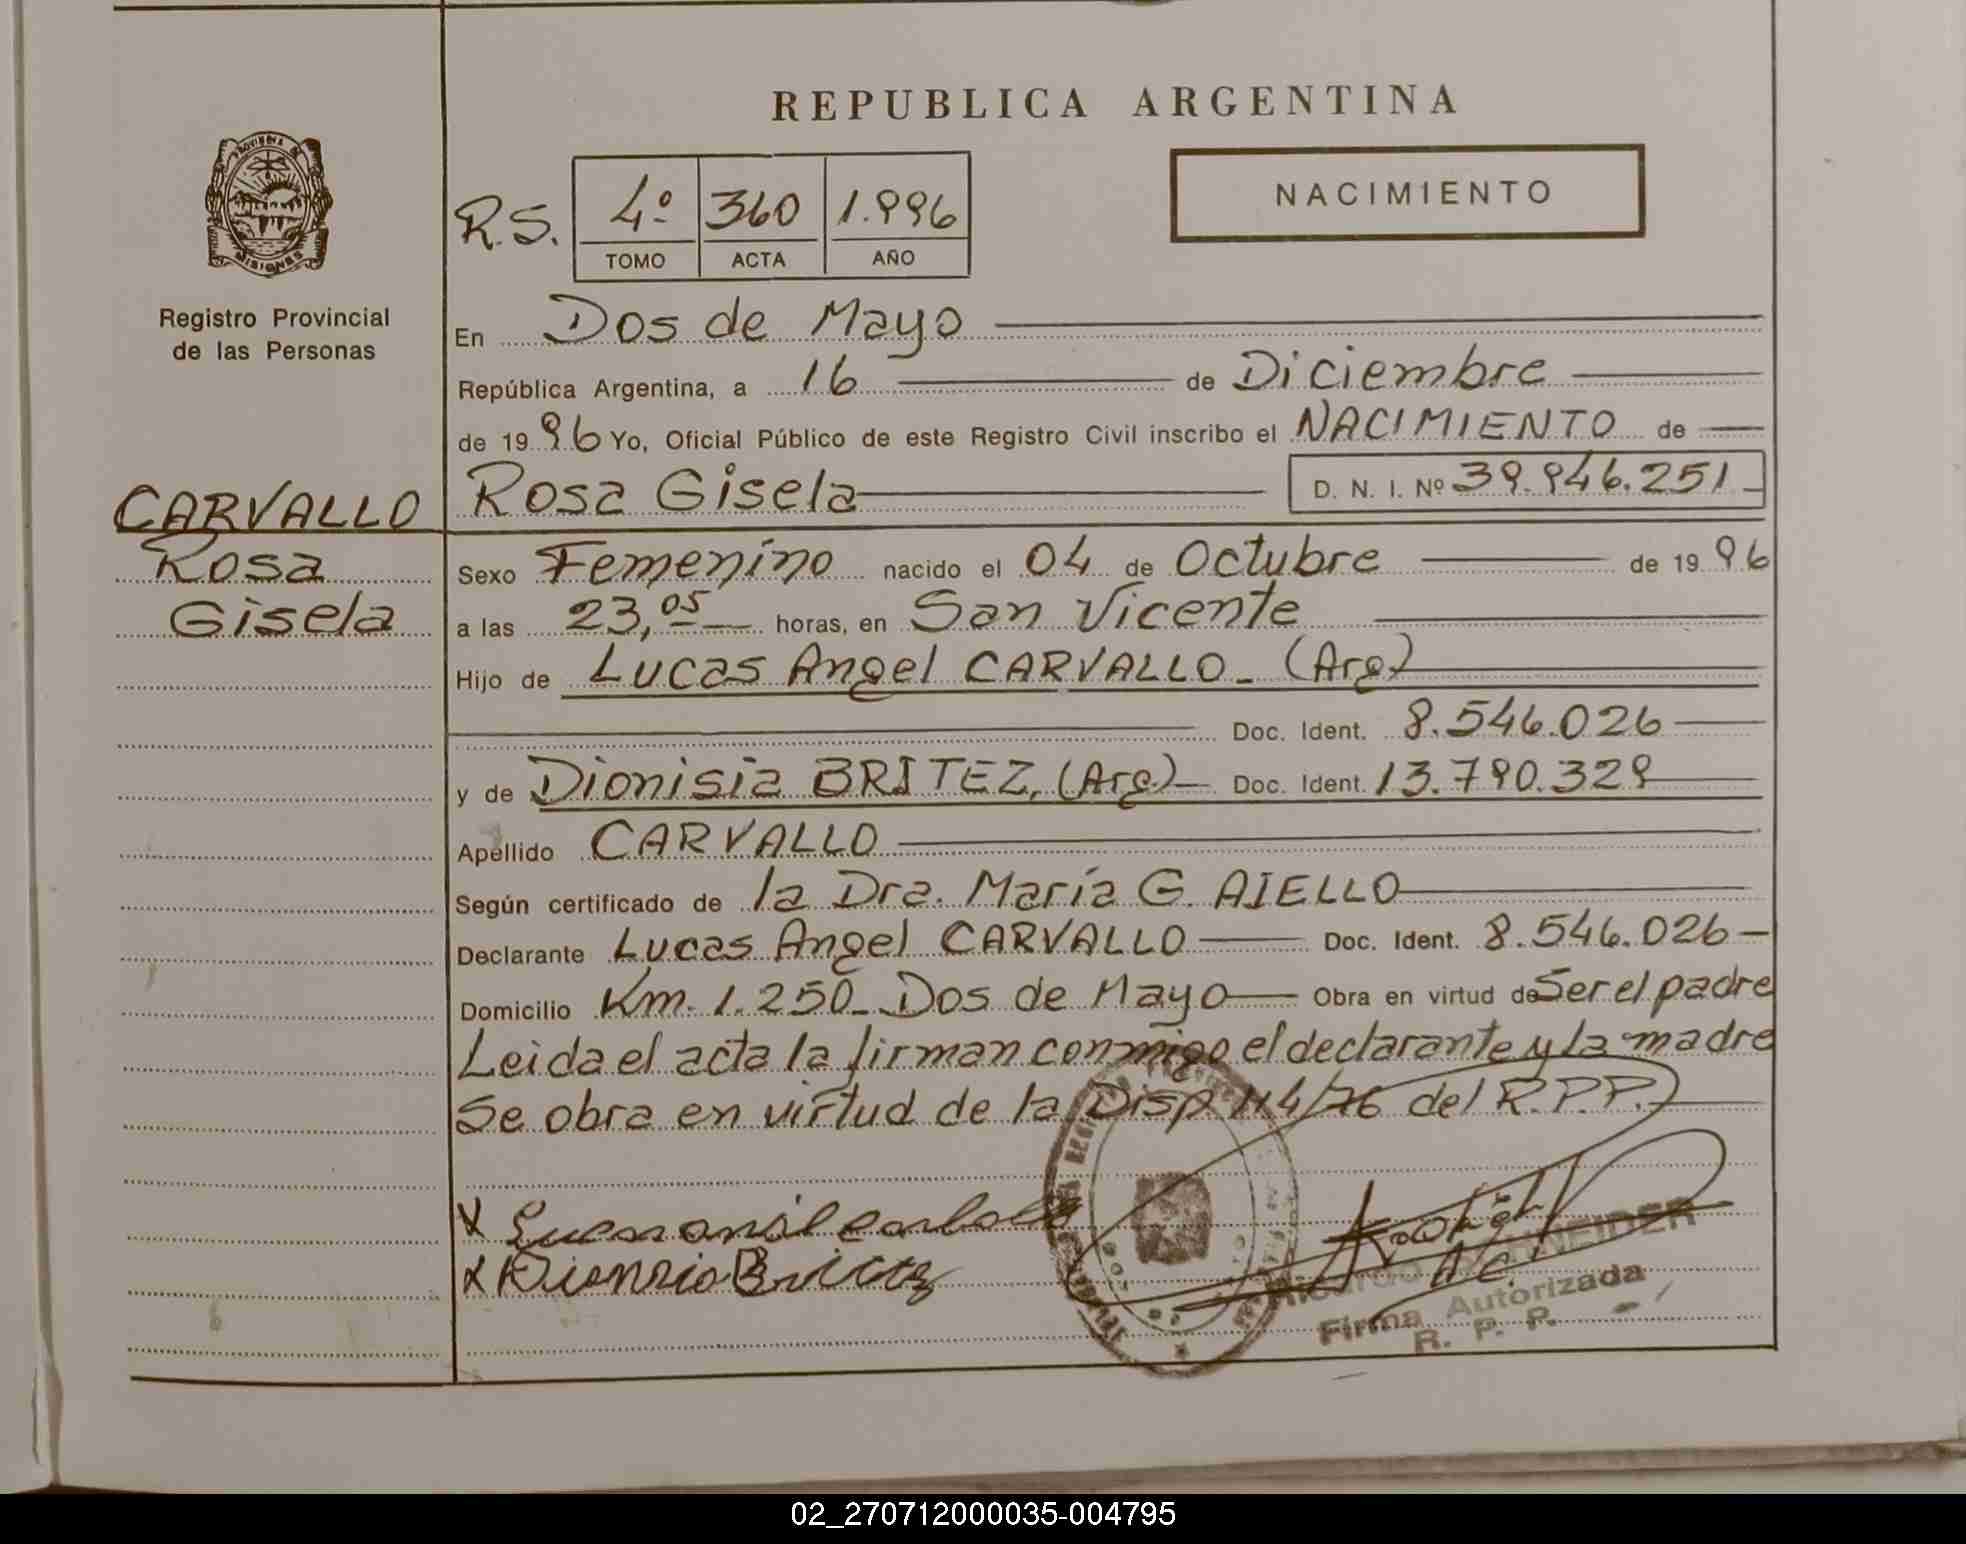 REPUBLICA ARGENTINA
PROVINCIA DE
MISIONES
Registro Provincial
de las Personas
R.S. 4º 360 1.996
TOMO ACTA AÑO
NACIMIENTO
En Dos de Mayo
República Argentina, a 16 de Diciembre
de 1996 Yo, Oficial Público de este Registro Civil inscribo el NACIMIENTO de
CARVALLO Rosa Gisela D. N. I. Nº 39.946.251
Rosa Sexo Femenino nacido el 04 de Octubre de 1996
Gisela a las 23,05 horas, en San Vicente
Hijo de Lucas Angel CARVALLO (Arg)
Doc. Ident. 8.546.026
y de Dionisia BRITEZ, (Arg.) Doc. Ident. 13.790.329
Apellido CARVALLO
Según certificado de la Dra. María G. AIELLO
Declarante Lucas Angel CARVALLO Doc. Ident. 8.546.026
Domicilio Km. 1.250 Dos de Mayo Obra en virtud de Ser el padre
Leida el acta la firman conmigo el declarante y la madre
Se obra en virtud de la Disp 114/76 del R.P.P.
SCHNEIDER
Firma Autorizada
R. P. P.
02_270712000035-004795